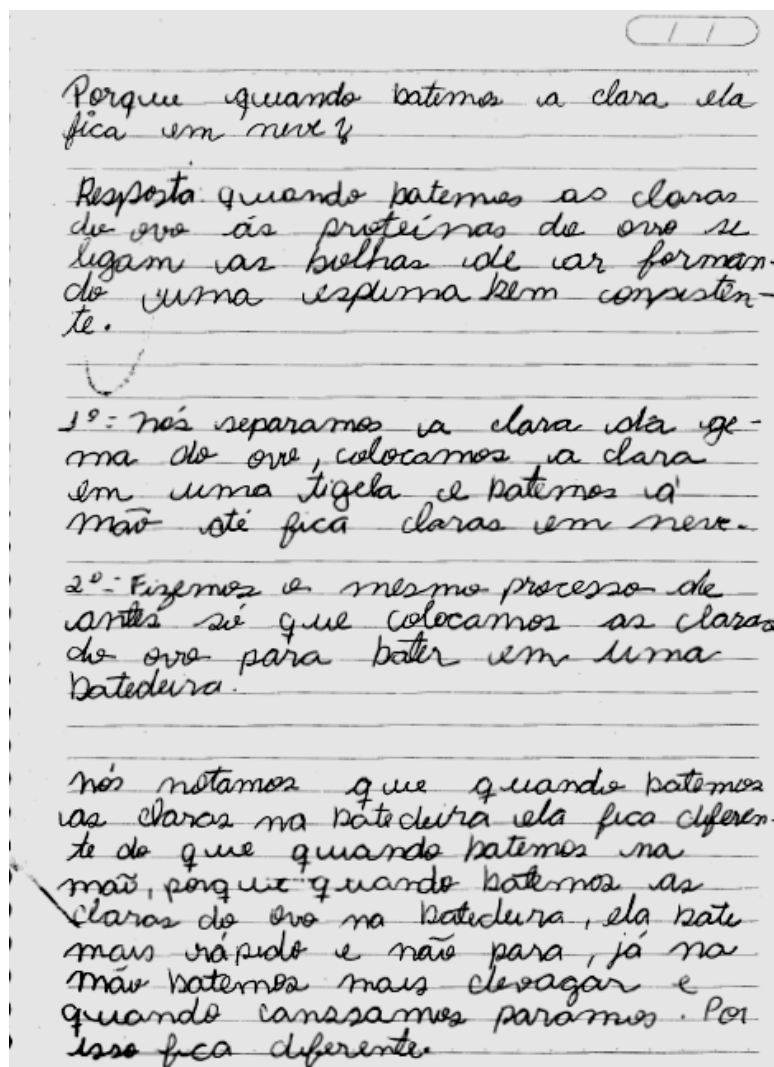 Porque quando batemos a clara ela
fica em neve?
Resposta: quando batemos as claras
do ovo ás proteínas do ovo se
ligam as bolhas de ar forman-
do uma espuma bem consisten-
te.
1º: nós separamos a clara da ge-
ma do ovo, colocamos a clara
em uma tigela e batemos a
mão até fica claras em neve.
2º: Fizemos o mesmo processo de
antes só que colocamos as claras
do ovo para bater em uma
batedeira.
nós notamos que quando batemos
as claras na batedeira ela fica diferen-
te do que quando batemos na
mão, porque quando batemos as
claras do ovo na batedeira, ela bate
mais rápido e não para, já na
mão batemos mais devagar e
quando canssamos paramos. Por
isso fica diferente.